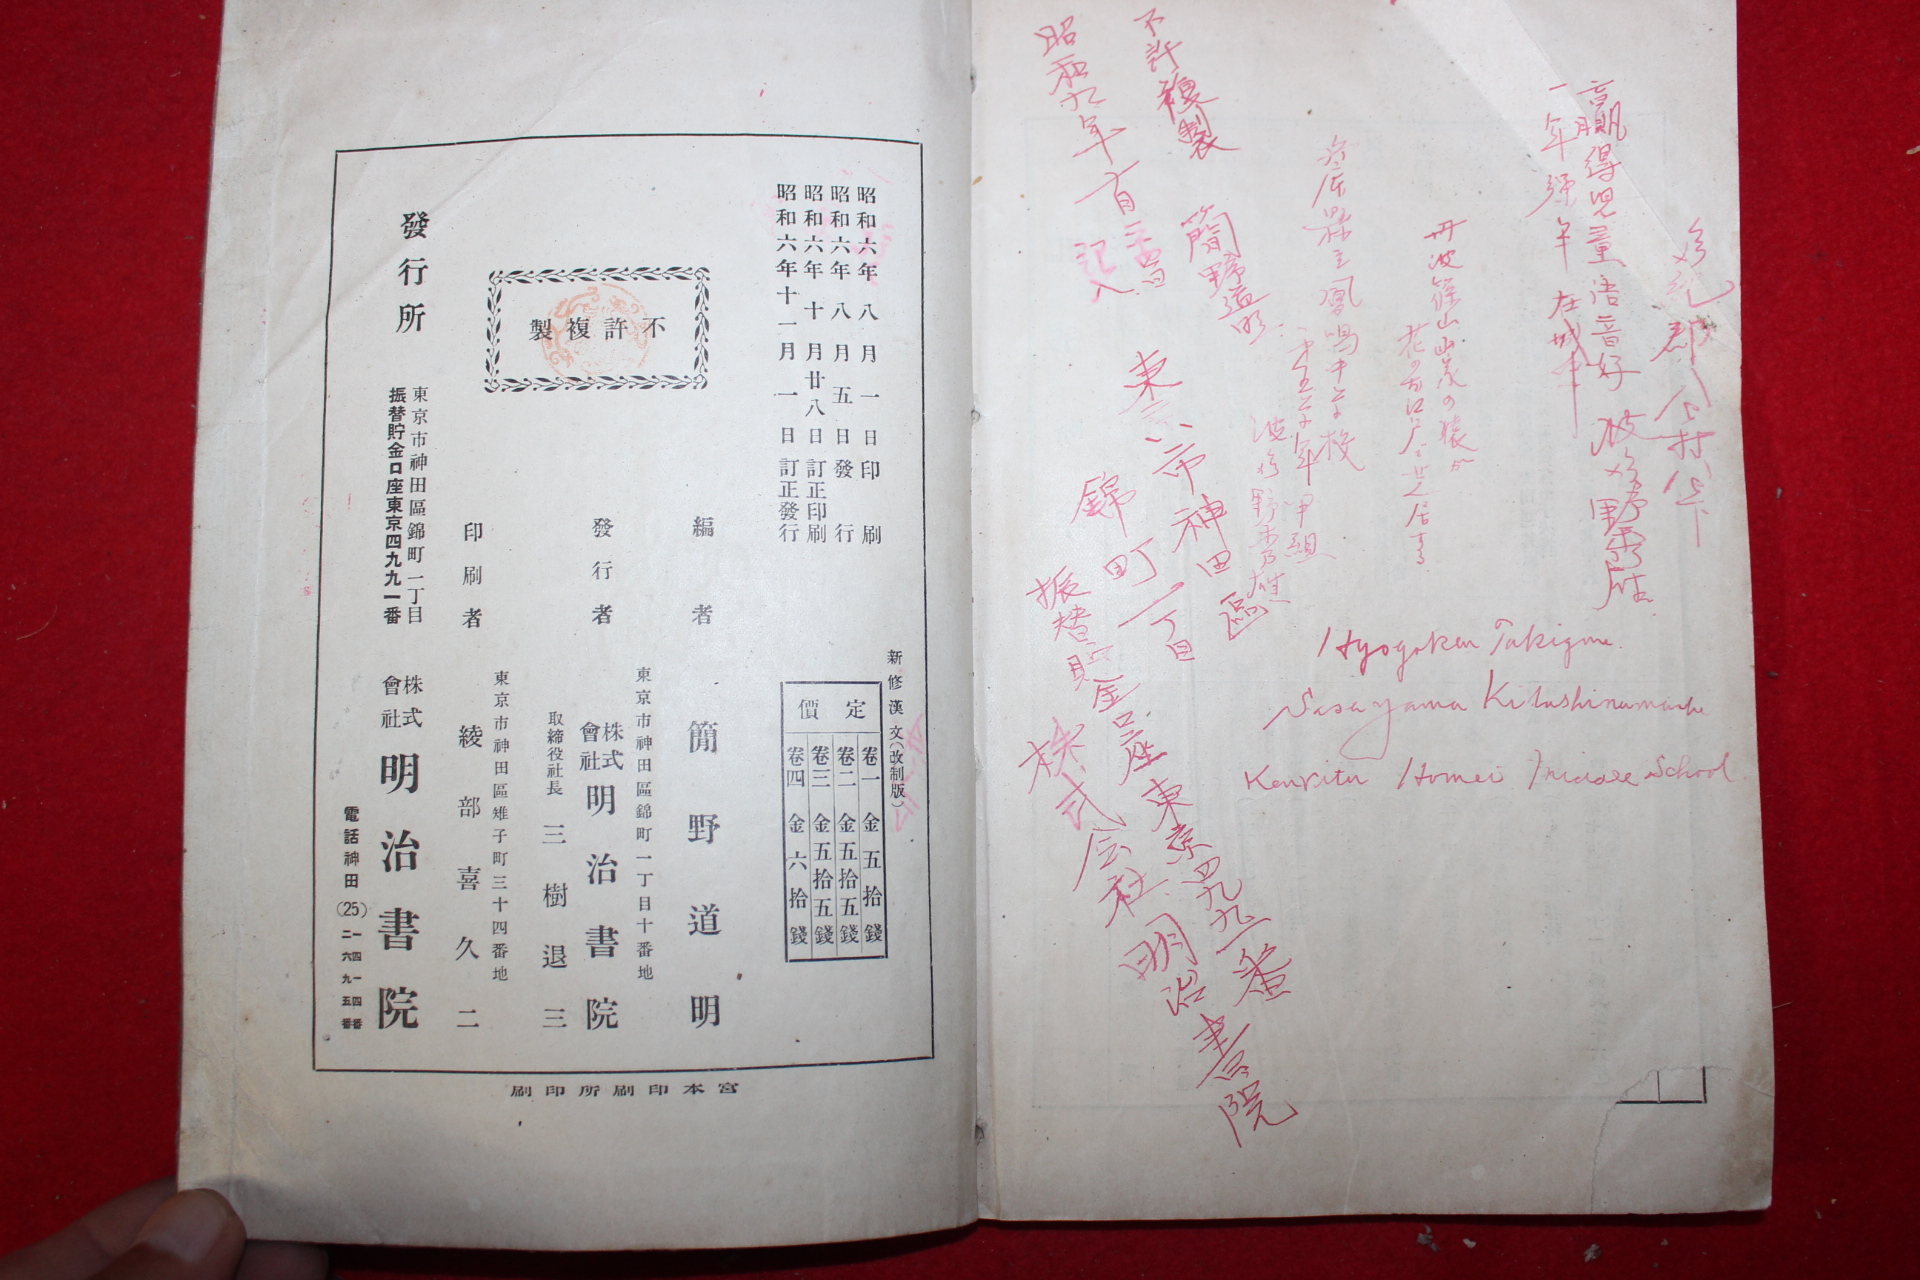 多紀郡八上村八上下
贏得児童語音好
一年強半在城中
丹波篠山山家の猿が
花のお江戸に芝居する
兵庫県立鳳鳴中学校
Hyogoken Takigun
Sasayama Kitashinmachi
Kenritu Homei Middle School
不許複製
簡野道明
昭和九年
記入
東京市神田區
錦町一丁目
振替貯金口座東京四九九一番
株式会社明治書院
新修漢文(改制版)
定價
卷一 金五拾錢
卷二 金五拾五錢
卷三 金五拾五錢
卷四 金六拾錢
昭和六年八月一日印刷
昭和六年八月五日發行
昭和六年十月廿八日訂正印刷
昭和六年十一月一日訂正發行
不許複製
編者 簡野道明
東京市神田區錦町一丁目十番地
發行者 株式會社明治書院
取締役社長 三樹退三
東京市神田區雉子町三十四番地
印刷者 綾部喜久二
發行所
東京市神田區錦町一丁目
振替貯金口座東京四九九一番
株式會社 明治書院
電話神田(25)
一四一四番
二六九五番
宮本印刷所印刷